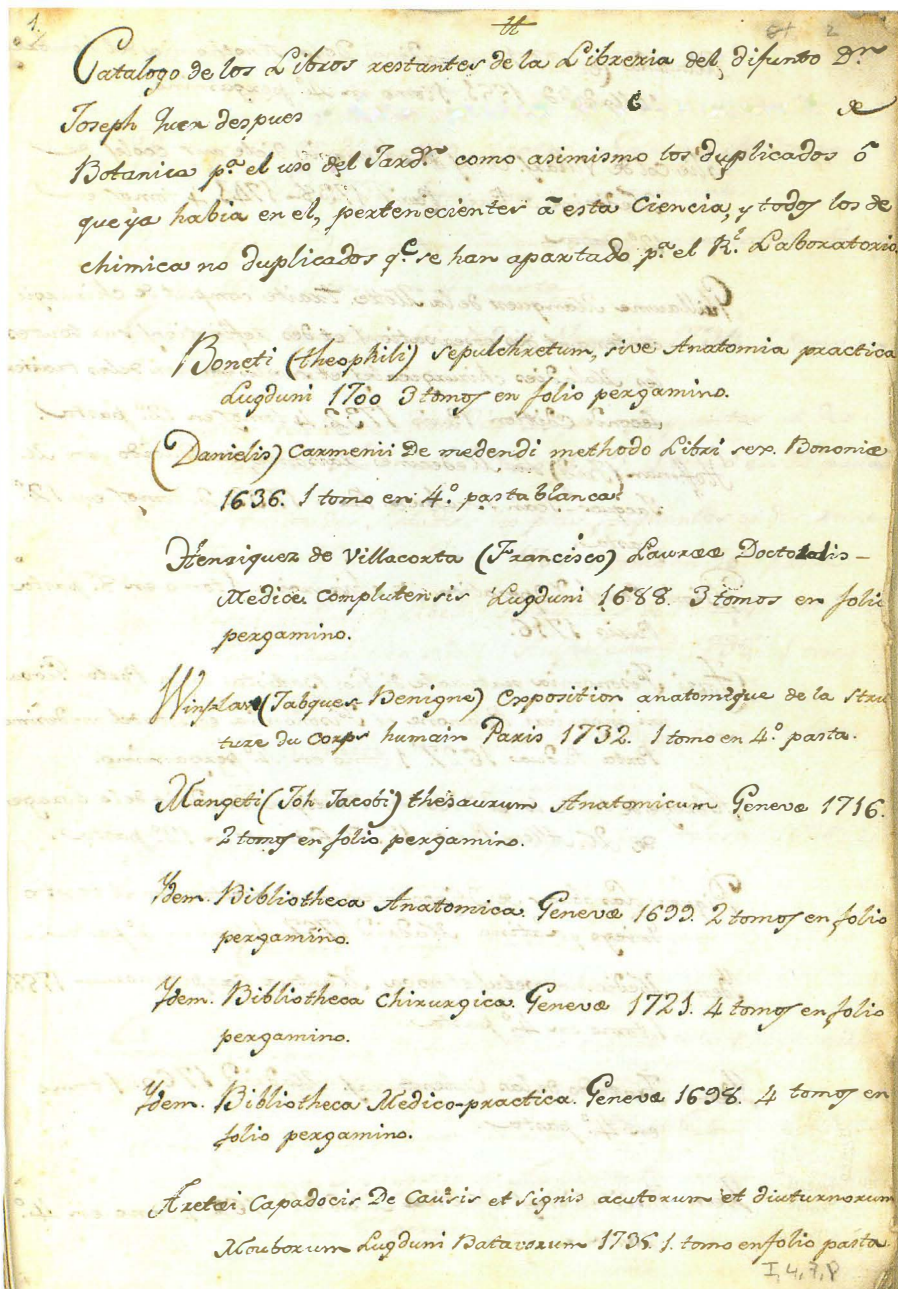 1.
Catalogo de los Libros restantes de la Libreria del difunto D.ⁿ
Joseph Quer despues
Botanica p.ª el uso del Jard.ⁿ como asimismo los duplicados ô
que ya habia en el, pertenecientes â esta Ciencia, y todos los de
chimica no duplicados q.ᵉ se han apartado p.ª el R.ˡ Laboratorio.
Boneti (theophili) sepulchretum, sive Anatomia practica
Lugduni 1700 3 tomos en folio pergamino.
(Danielis) Carmenii De medendi methodo Libri sex. Bononiæ
1636. 1 tomo en 4.º pasta blanca.
Henriquez de Villacorta (Francisco) Laureæ Doctoralis
Medicæ Complutensis Lugduni 1688. 3 tomos en folio
pergamino.
(Jabques Benigne) Exposition anatomique de la Stru
ture du Corps humain Paris 1732. 1 tomo en 4.º pasta.
Mangeti (Joh Jacobi) thesaurum Anatomicum Genevæ 1716.
2 tomos en folio pergamino.
Ydem. Bibliotheca Anatomica. Genevæ 1699. 2 tomos en folio
pergamino.
Ydem. Bibliotheca Chirurgica. Genevæ 1721. 4 tomos en folio
pergamino.
Ydem. Bibliotheca Medico-practica. Genevæ 1698. 4 tomos en
folio pergamino.
Aretæi Capadocis De Causis et signis acutorum et diuturnorum
Mouborum Lugduni Batavorum 1735. 1. tomo en folio pasta.
I, 4, 7, 8